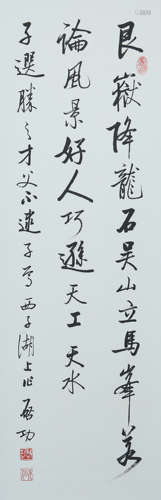 艮嶽降龍石吳山立馬峯若
論風景好人巧遜天工 天水
子選勝之才父不逮子為西子湖上作 启功